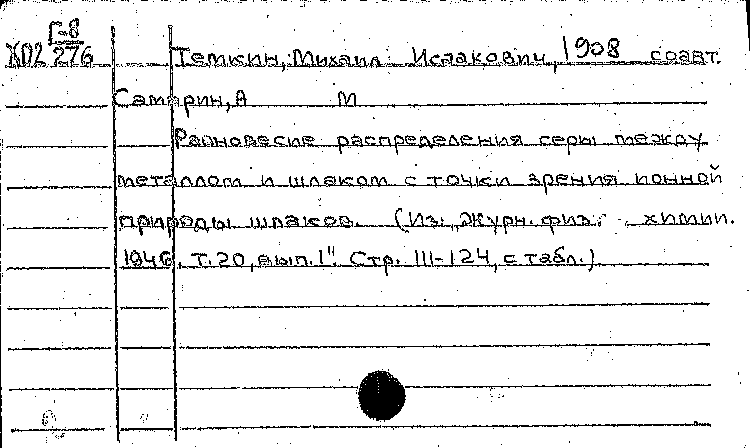 Г-8
ХД2 276
Темкин, Михаил Исаакович, 1908 соавт.
Самарин, А М
Равновесие распределения серы между
металлом и шлаком с точки зрения ионной
природы шлаков. (Из: „Журн. физ. химии.
1946, т. 20, вып. 1". Стр. 111-124, с табл.)